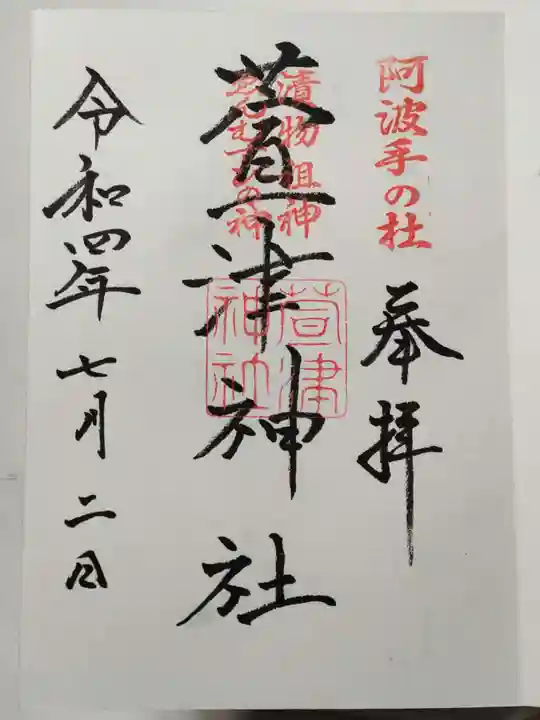 阿波手の杜
奉拝
漬物祖神
ゑんむすびの神
萱津神社
萱津神社
令和四年七月二日